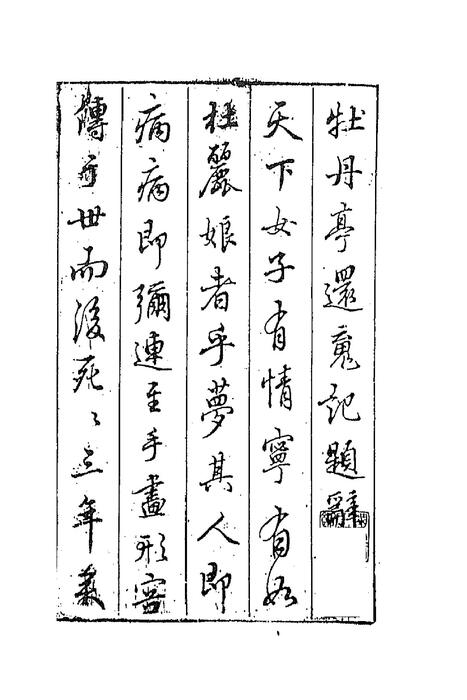 牡丹亭還魂記題辭
天下女子有情寧有如
杜麗娘者乎夢其人即
病病即彌連至手畫形容
傳于世而後死死三年矣